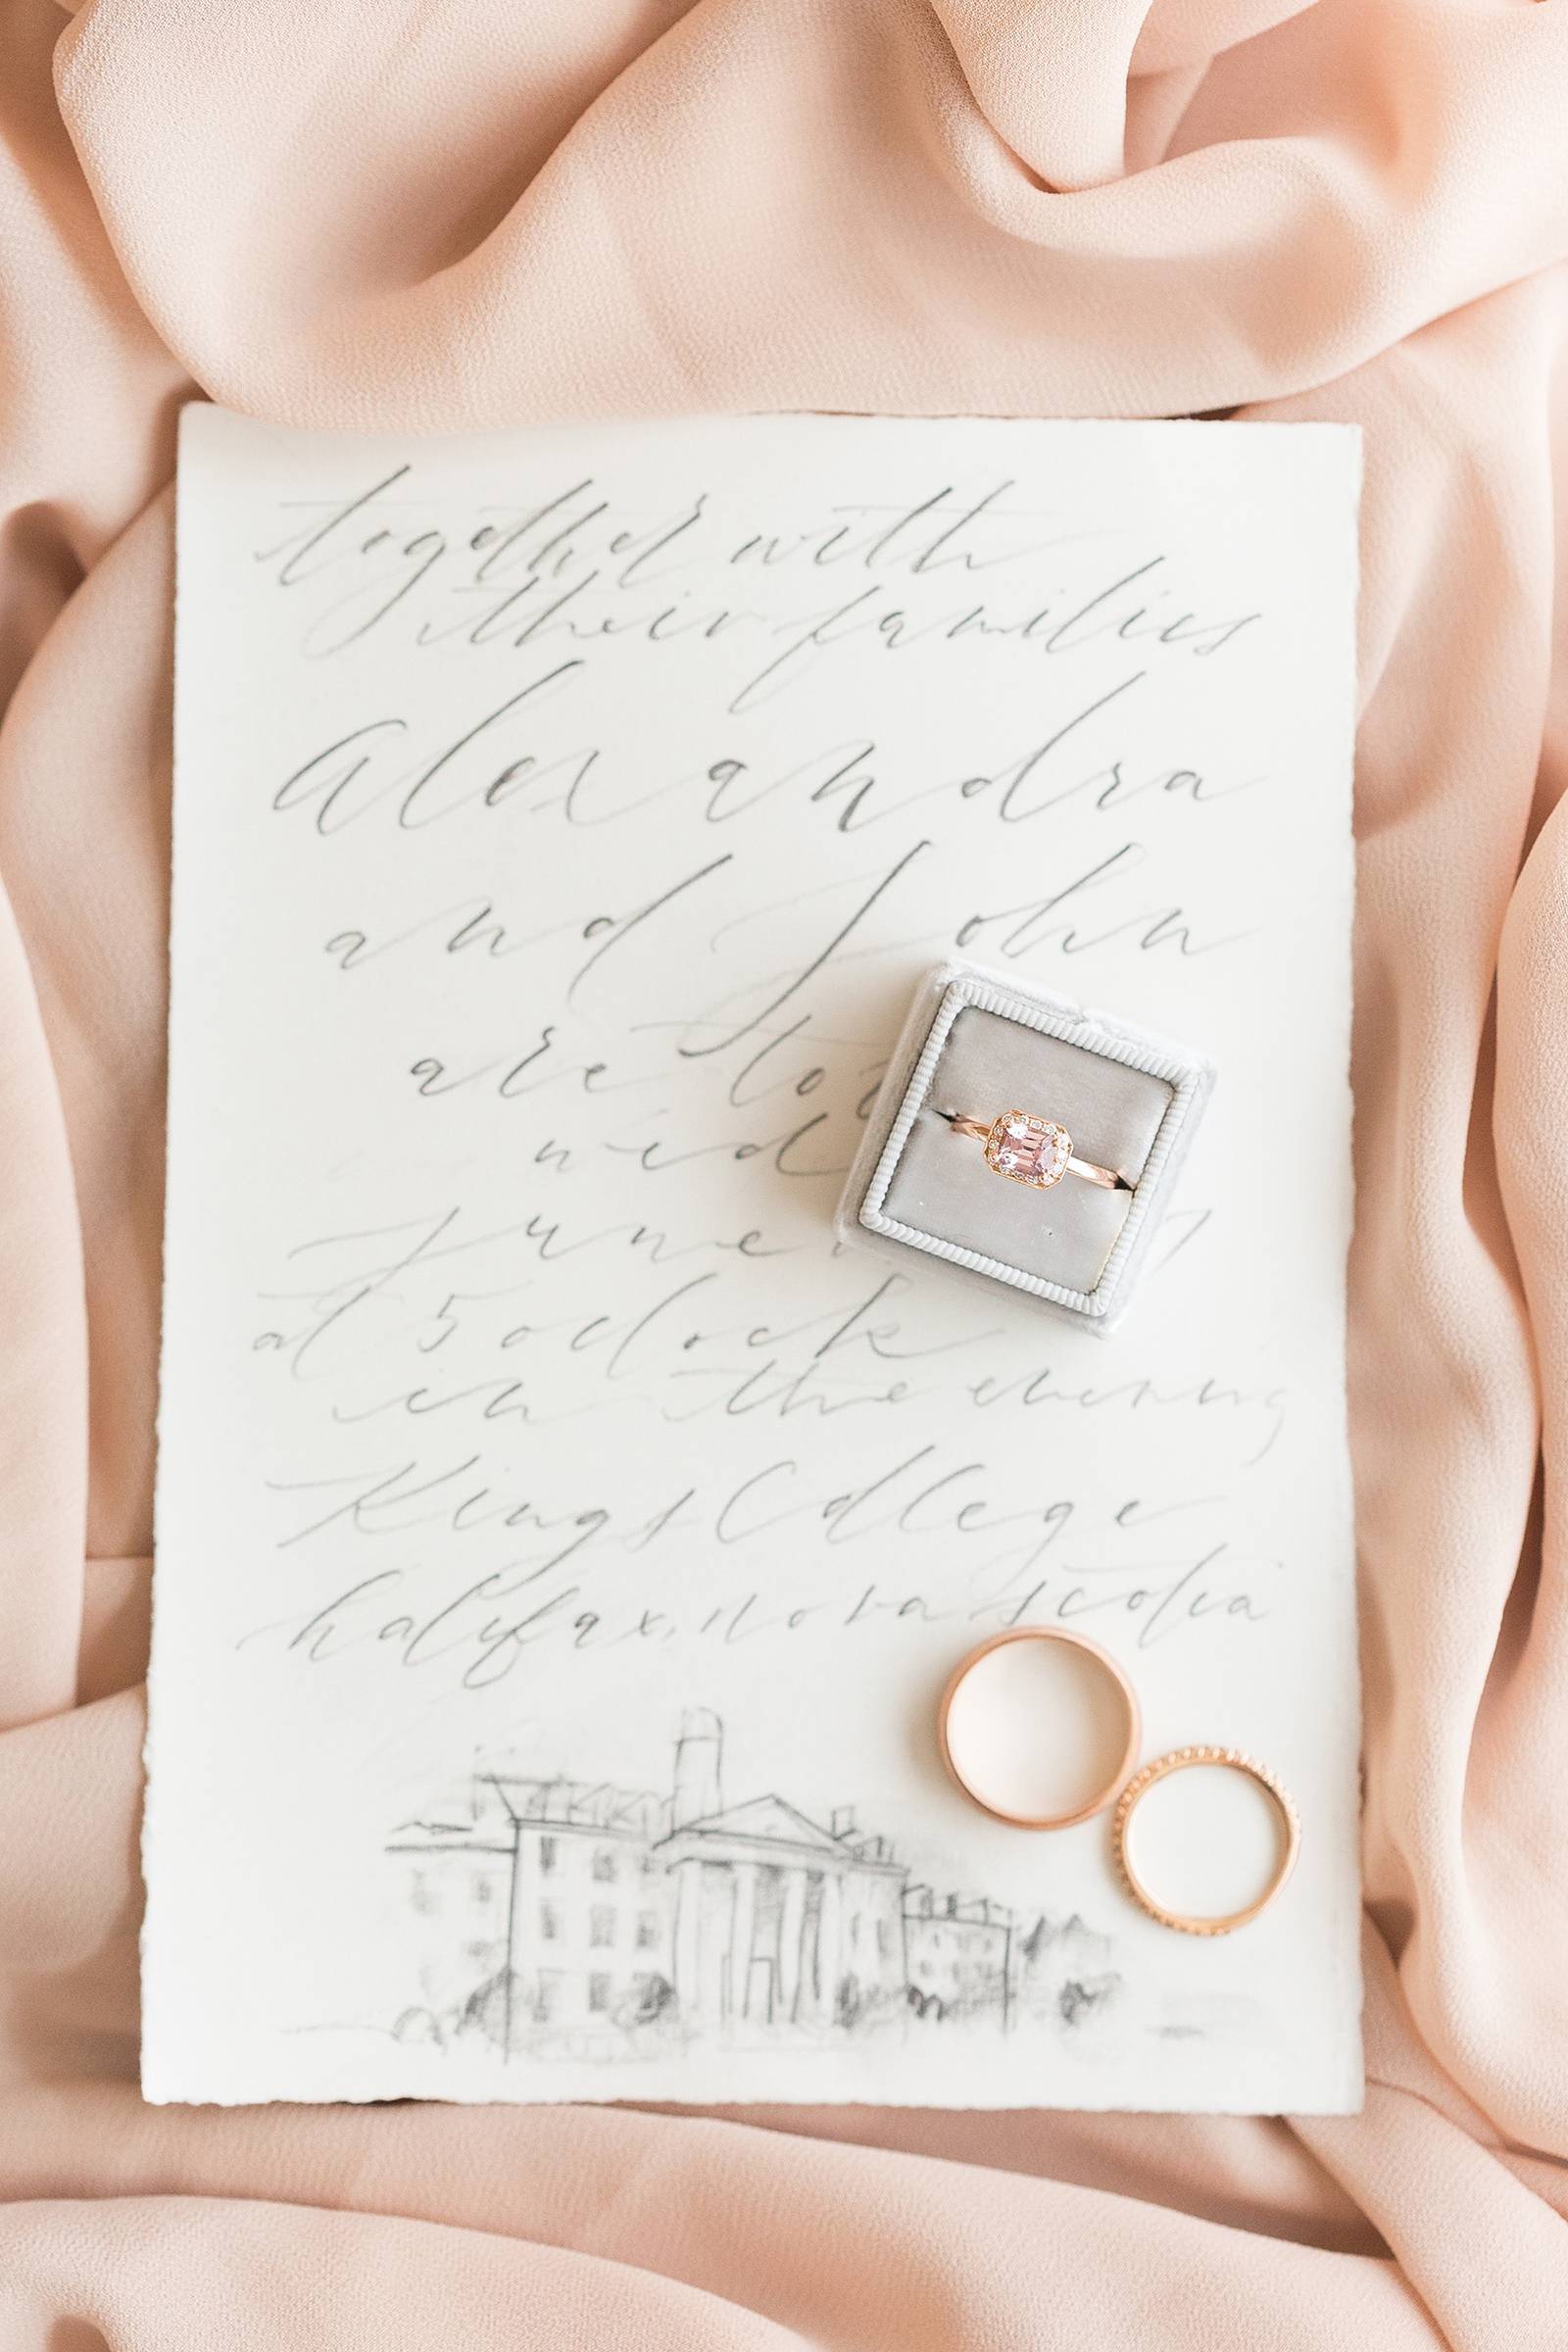 together with
their families
alexandra
and John
are to
wed
June
at 5 oclock
in the evening
Kings College
halifax, nova scotia